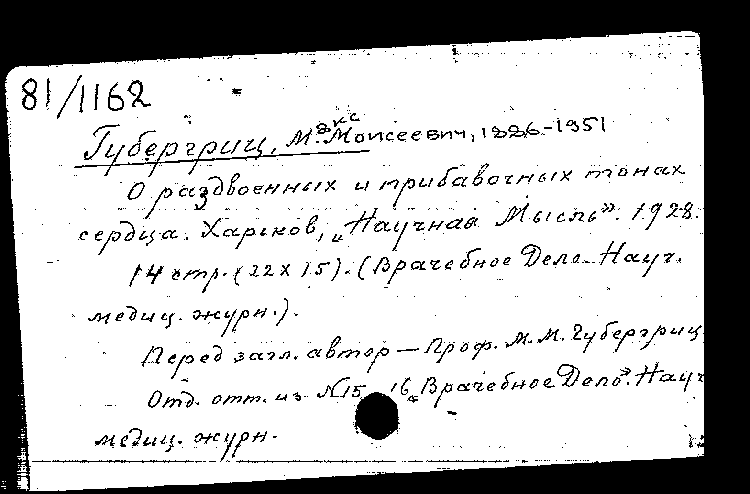 81/1162
Губергриц, Макс Моисеевич, 1886-1951
О раздвоенных и прибавочных тонах
сердца. Харьков, „Научная Мысль". 1928.
14 стр. (22x15). (Врачебное Дело. Науч.
медиц. журн.).
Перед загл. автор — Проф. М.М. Губергриц
Отд. отт. из N15, 16 „Врачебное Дело". Науч
медиц. журн.